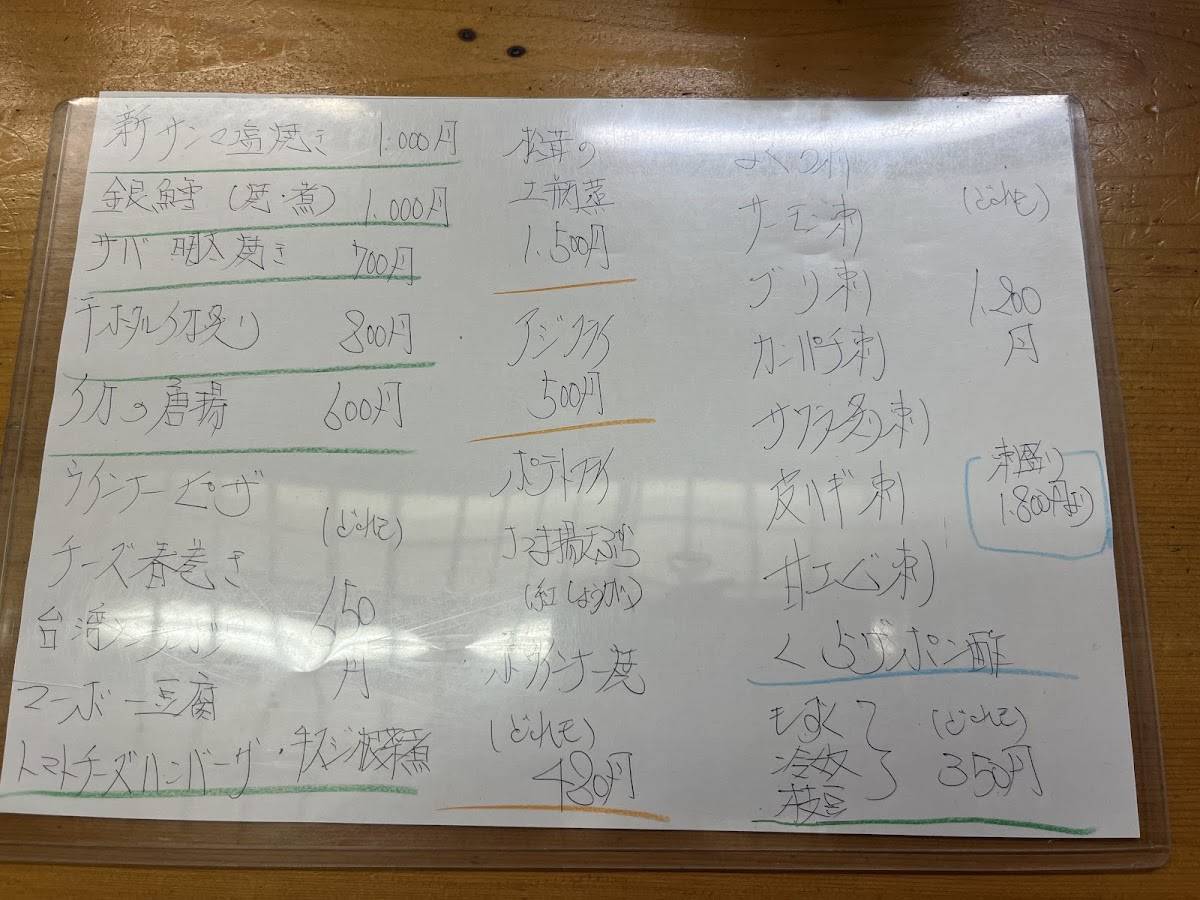 新サンマ塩焼き 1.000円
銀鱈(焼・煮) 1.000円
サバ明太焼き 700円
干ホタルイカ炙り 800円
イカの唐揚 600円
ウインナーピザ
チーズ春巻き
(どれも)
650
円
マーボー豆腐
トマトチーズハンバーグ・牛スジ
松茸の
土瓶蒸
1.500円
アジフライ
500円
ポテトフライ
さつま揚天ぷら
(紅しょうが)
(どれも)
480円
サーモン刺
ブリ刺
カンパチ刺
サワラ炙り刺
皮ハギ刺
甘エビ刺
くらげポン酢
(どれも)
1.200
円
刺盛り
1.800円より
もずく
冷奴
枝豆
(どれも)
350円